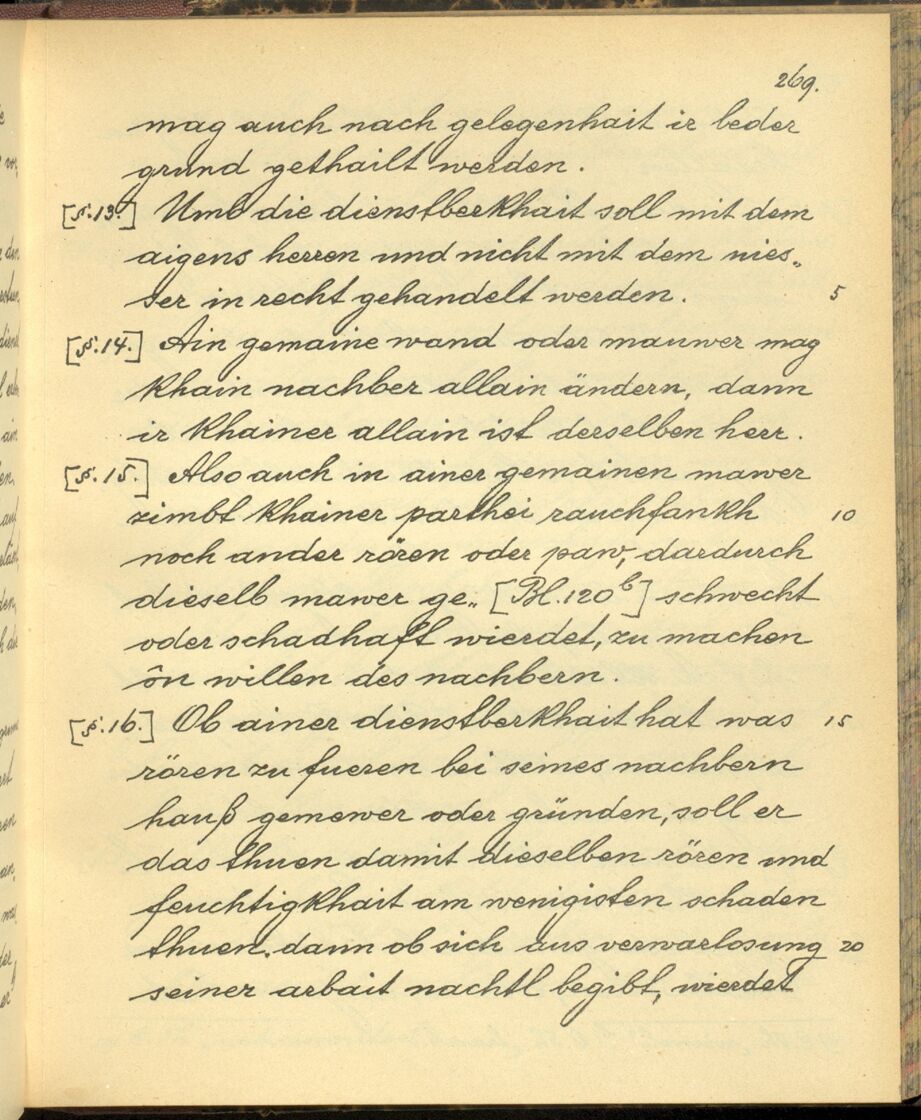 269.
mag auch nach gelegenhait ir beder
grund gethailt werden.
[§.13.] Umb die dienstberkhait soll mit dem
aigens herren und nicht mit dem nies„
ser in recht gehandelt werden. 5
[§.14.] Ain gemaine wand oder mauwer mag
khain nachber allain ändern, dann
ir khainer allain ist derselben herr.
[§.15.] Also auch in ainer gemainen mawer
zimbt khainer parthei rauchfankh 10
noch ander rören oder paw, dardurch
dieselb mawer ge„ [Bl.120b] schwecht
oder schadhaft wierdet, zu machen
ôn willen des nachbern.
[§.16.] Ob ainer dienstberkhait hat was 15
rören zu fueren bei seines nachbern
hauß gemewer oder gründen, soll er
das thuen damit dieselben rören und
feuchtigkhait am wenigisten schaden
thuen. dann ob sich aus verwarlosung 20
seiner arbait nachtl begibt, wierdet